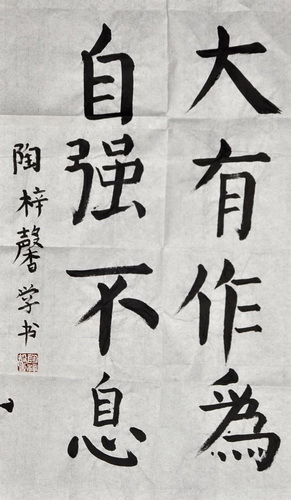 大有作為
自强不息
陶梓馨学书